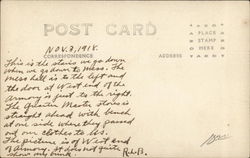 POST CARD
NOV. 3, 1918.
CORRESPONDENCE
ADDRESS
PLACE
STAMP
HERE
This is the stairs we go down
when we go down to Mess. The
Mess hall is to the left and
the door at West end of the
Armory is just to the right.
The Quarter Master store is
straight ahead with bench
at one side where they passed
out our clothes to us.
The picture is of West end
of Armory. It does not quite
show my bunk. R.L.B.